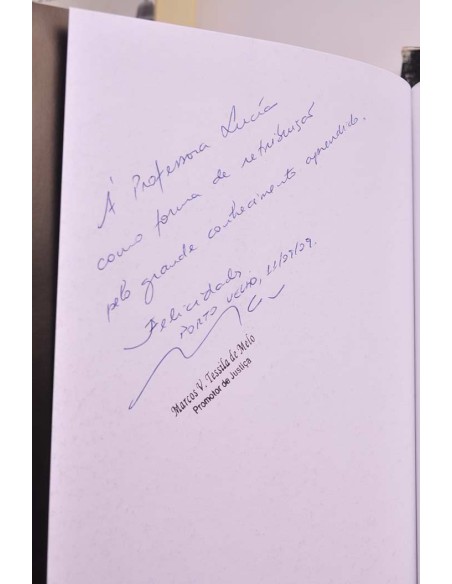 À Professora Lucía
como forma de retribuição
pelo grande conhecimento aprendido.
Felicidads
PORTO VELHO, 11/09/09.
Marcos V. Tessila de Melo
Promotor de Justiça